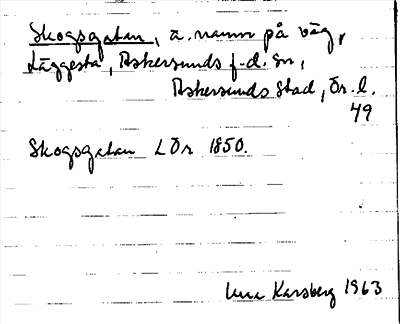 Skogsgatan, ä. namn på väg,
Läggesta, Askersunds f.d. sn,
Askersunds stad, Ör. l.
49
Skogsgatan LÖr 1850.
Karsberg 1963